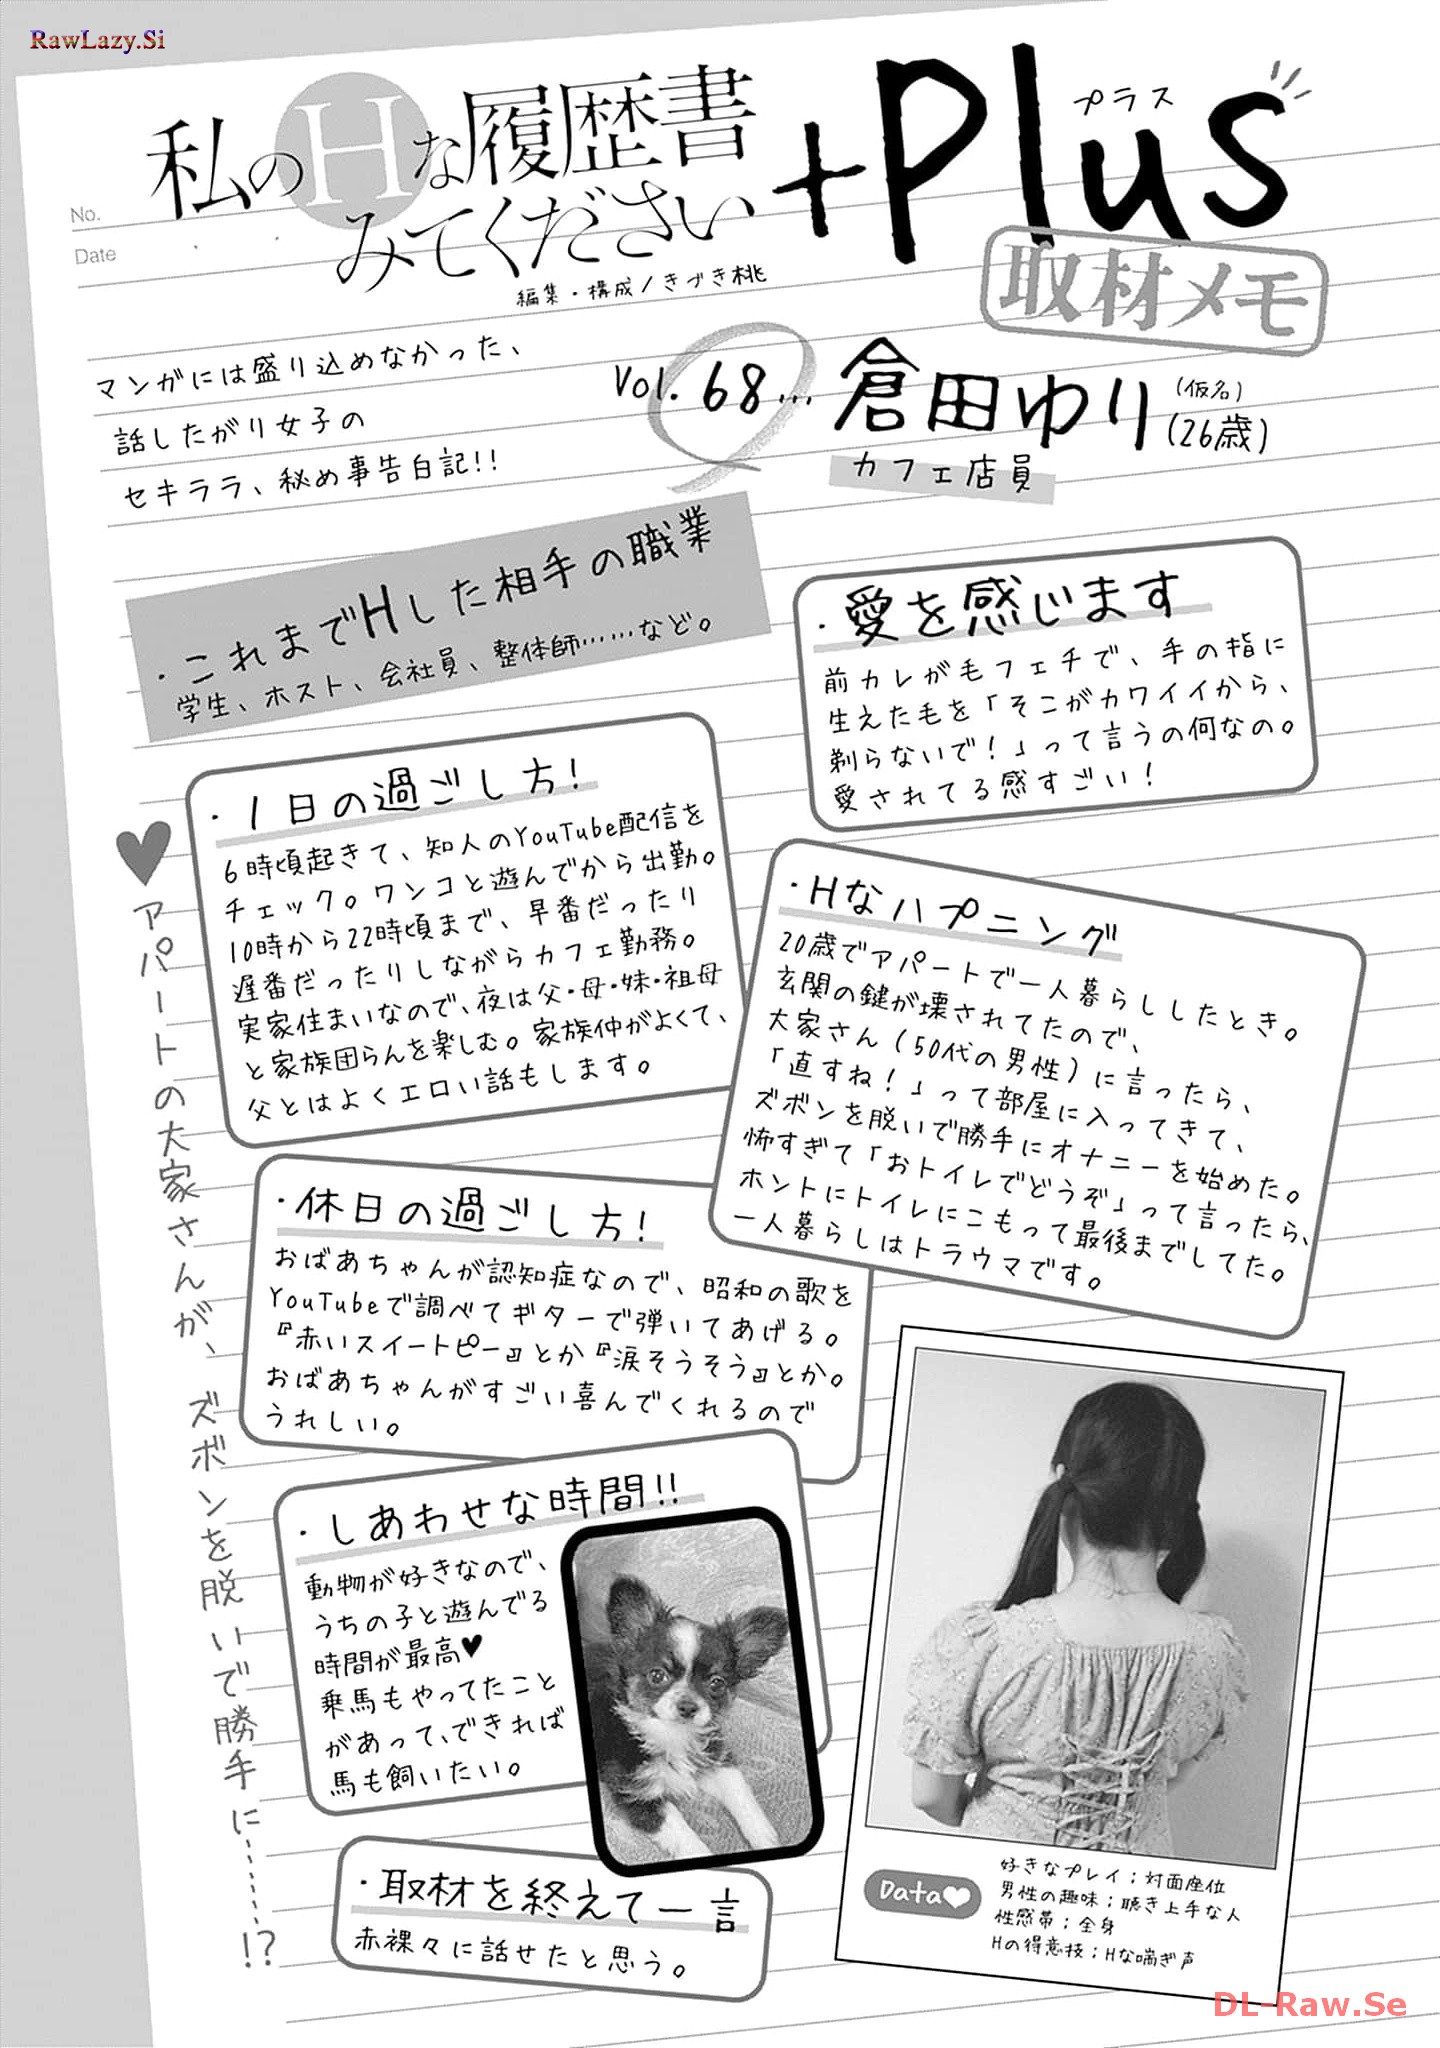 RawLazy.Si
No.
Date
私のHな履歴書
みてください
+Plus
プラス
取材メモ
編集・構成/きづき桃
マンガには盛り込めなかった、
話したがり女子の
セキララ、秘め事告白記!!
Vol.68…
倉田ゆり(仮名)
(26歳)
カフェ店員
・これまでHした相手の職業
学生、ホスト、会社員、整体師……など。
・愛を感じます
前カレが毛フェチで、手の指に
生えた毛を「そこがカワイイから、
剃らないで!」って言うの何なの。
愛されてる感すごい!
・1日の過ごし方!
6時頃起きて、知人のYouTube配信を
チェック。ワンコと遊んでから出勤。
10時から22時頃まで、早番だったり
遅番だったりしながらカフェ勤務。
実家住まいなので、夜は父・母・妹・祖母
と家族団らんを楽しむ。家族仲がよくて、
父とはよくエロい話もします。
・Hなハプニング
20歳でアパートで一人暮らししたとき。
玄関の鍵が壊されてたので、
大家さん(50代の男性)に言ったら、
「直すね!」って部屋に入ってきて、
ズボンを脱いで勝手にオナニーを始めた。
怖すぎて「おトイレでどうぞ」って言ったら、
ホントにトイレにこもって最後までしてた。
一人暮らしはトラウマです。
♥アパートの大家さんが、ズボンを脱いで勝手に………!?
・休日の過ごし方!
おばあちゃんが認知症なので、昭和の歌を
YouTubeで調べてギターで弾いてあげる。
『赤いスイートピー』とか『涙そうそう』とか。
おばあちゃんがすごい喜んでくれるので
うれしい。
・しあわせな時間!!
動物が好きなので、
うちの子と遊んでる
時間が最高♥
乗馬もやってたこと
があって、できれば
馬も飼いたい。
・取材を終えて一言
赤裸々に話せたと思う。
Data♥
好きなプレイ;対面座位
男性の趣味;聴き上手な人
性感帯;全身
Hの得意技;Hな喘ぎ声
DL-Raw.Se